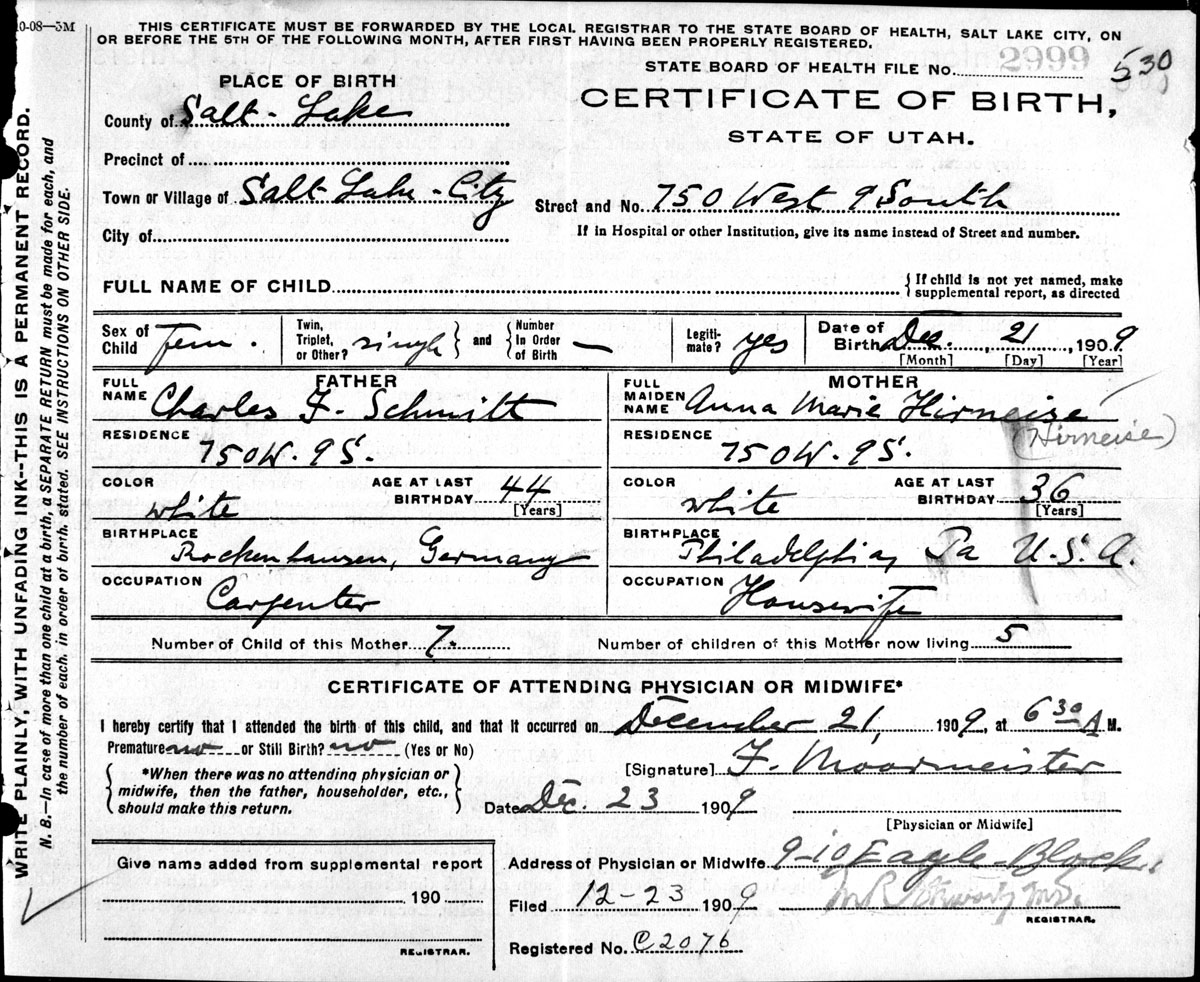 10-08—3M
THIS CERTIFICATE MUST BE FORWARDED BY THE LOCAL REGISTRAR TO THE STATE BOARD OF HEALTH, SALT LAKE CITY, ON
OR BEFORE THE 5TH OF THE FOLLOWING MONTH, AFTER FIRST HAVING BEEN PROPERLY REGISTERED.
STATE BOARD OF HEALTH FILE No. 2999 530
PLACE OF BIRTH
CERTIFICATE OF BIRTH,
STATE OF UTAH.
County of Salt-Lake
Precinct of
Town or Village of Salt Lake-City
Street and No. 750 West 9 South
City of
If in Hospital or other Institution, give its name instead of Street and number.
FULL NAME OF CHILD
If child is not yet named, make
supplemental report, as directed
Sex of Child Fem. Twin, Triplet, or Other? single and Number In Order of Birth — Legiti-mate? yes Date of Birth Dec. 21, 1909
[Month] [Day] [Year]
FATHER
FULL NAME Charles F. Schmitt
RESIDENCE 750 W. 9 S.
COLOR white AGE AT LAST BIRTHDAY 44 [Years]
BIRTHPLACE Rockenhausen, Germany
OCCUPATION Carpenter
MOTHER
FULL MAIDEN NAME Anna Marie Hirneise
(Hirneise)
RESIDENCE 750 W. 9 S.
COLOR white AGE AT LAST BIRTHDAY 36 [Years]
BIRTHPLACE Philadelphia, Pa U.S.A.
OCCUPATION Housewife
Number of Child of this Mother 7. Number of children of this Mother now living 5
CERTIFICATE OF ATTENDING PHYSICIAN OR MIDWIFE*
I hereby certify that I attended the birth of this child, and that it occurred on December 21, 1909, at 6 30 A M.
Premature no or Still Birth? no (Yes or No)
*When there was no attending physician or
midwife, then the father, householder, etc.,
should make this return.
[Signature] F. Moormeister
Date Dec. 23 1909
[Physician or Midwife]
Give name added from supplemental report
190
REGISTRAR.
Address of Physician or Midwife 9-10 Eagle-Block
Filed 12-23 1909
REGISTRAR.
Registered No. C2076
WRITE PLAINLY, WITH UNFADING INK--THIS IS A PERMANENT RECORD.
N. B.—In case of more than one child at a birth, a SEPARATE RETURN must be made for each, and
the number of each, in order of birth, stated. SEE INSTRUCTIONS ON OTHER SIDE.